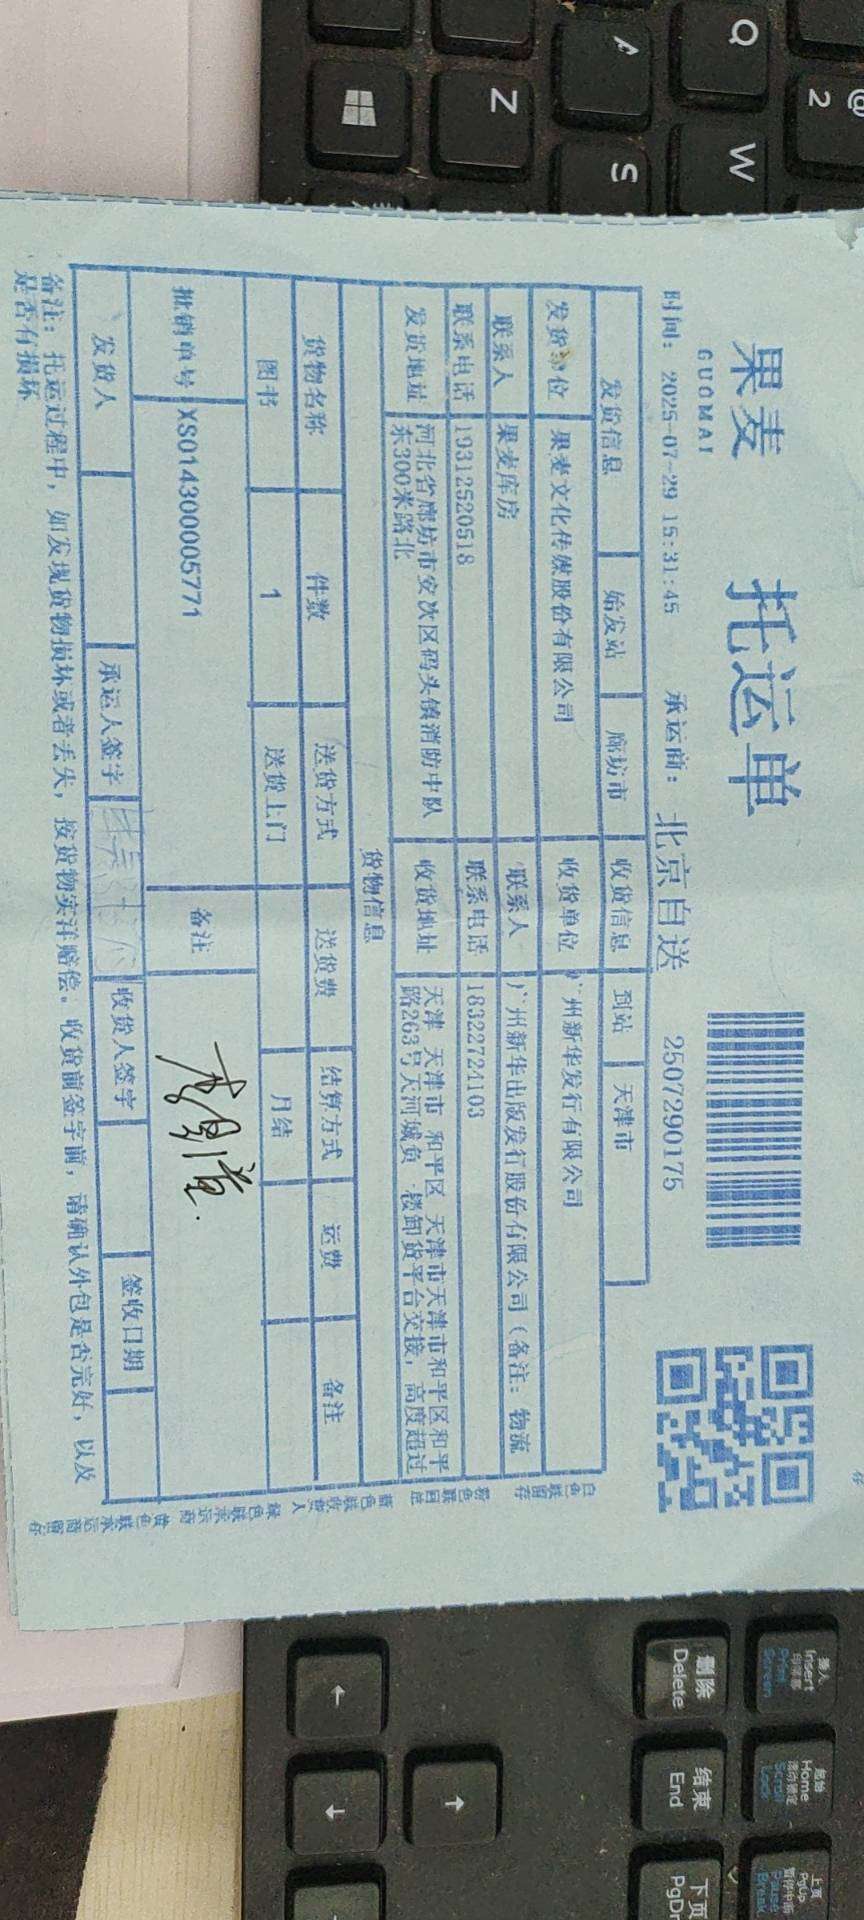 果麦 托运单
GUOMAI
时间: 2025-07-29 15:31:45 承运商: 北京自送 2507290175
发货信息 始发站 廊坊市 收货信息 到站 天津市
发货单位 果麦文化传媒股份有限公司 收货单位 广州新华发行有限公司
联系人 果麦库房 联系人 广州新华出版发行股份有限公司(备注:物流
联系电话 19312520518 联系电话 18322724103
发货地址 河北省廊坊市安次区码头镇消防中队
东300米路北
收货地址 天津 天津市 和平区 天津市天津市和平区和平
路263号天河城负一楼卸货平台交接,高度超过
货物信息
货物名称 件数 送货方式 送货费 结算方式 运费 备注
图书 1 送货上门 月结
批销单号 XS014300005771 备注
发货人 承运人签字 收货人签字 签收日期
备注:托运过程中,如发现货物损坏或者丢失,按货物实洋赔偿。收货前签字前,请确认外包是否完好,以及
是否有损坏
白色联留存 粉色联回单 蓝色联收货人 绿色联承运商 黄色联承运商留存
@
2
Q
W
A
S
Z
插入
Insert
Print
Screen
删除
Delete
起始
Home
Scroll
Lock
结束
End
上页
PgUp
Pause
Break
下页
PgDn